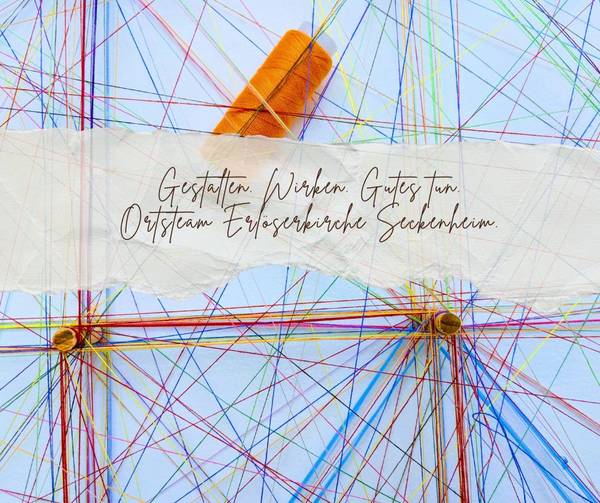 Gestalten. Wirken. Gutes tun.
Ortsteam Erlöserkirche Seckenheim.